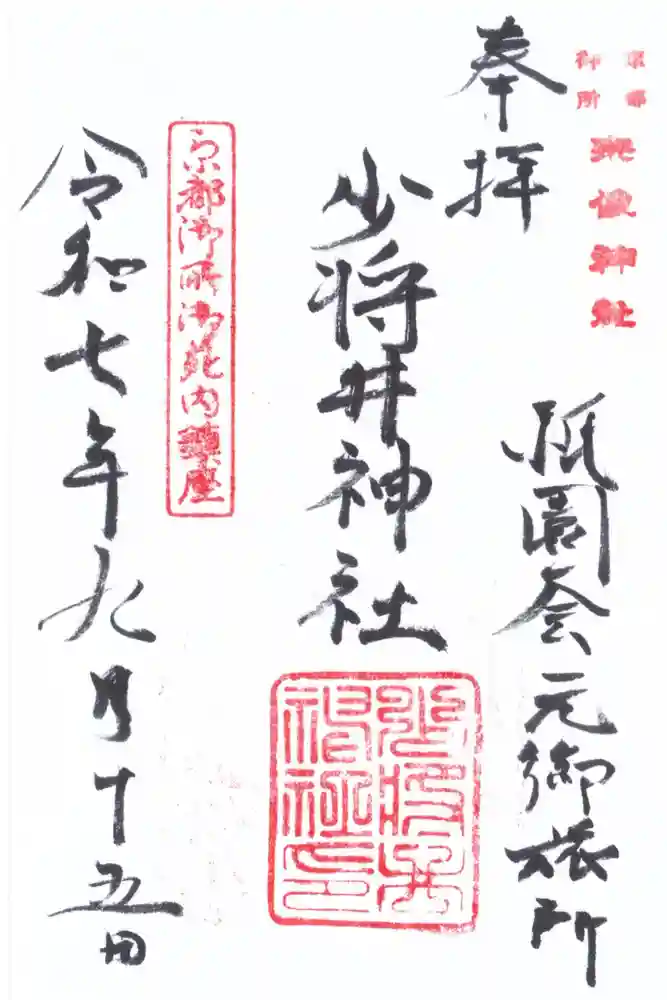 京都
御所
宗像神社
奉拝
祇園会元御旅所
少将井神社
少将井神社印
京都御所御苑内鎮座
令和七年九月十五日